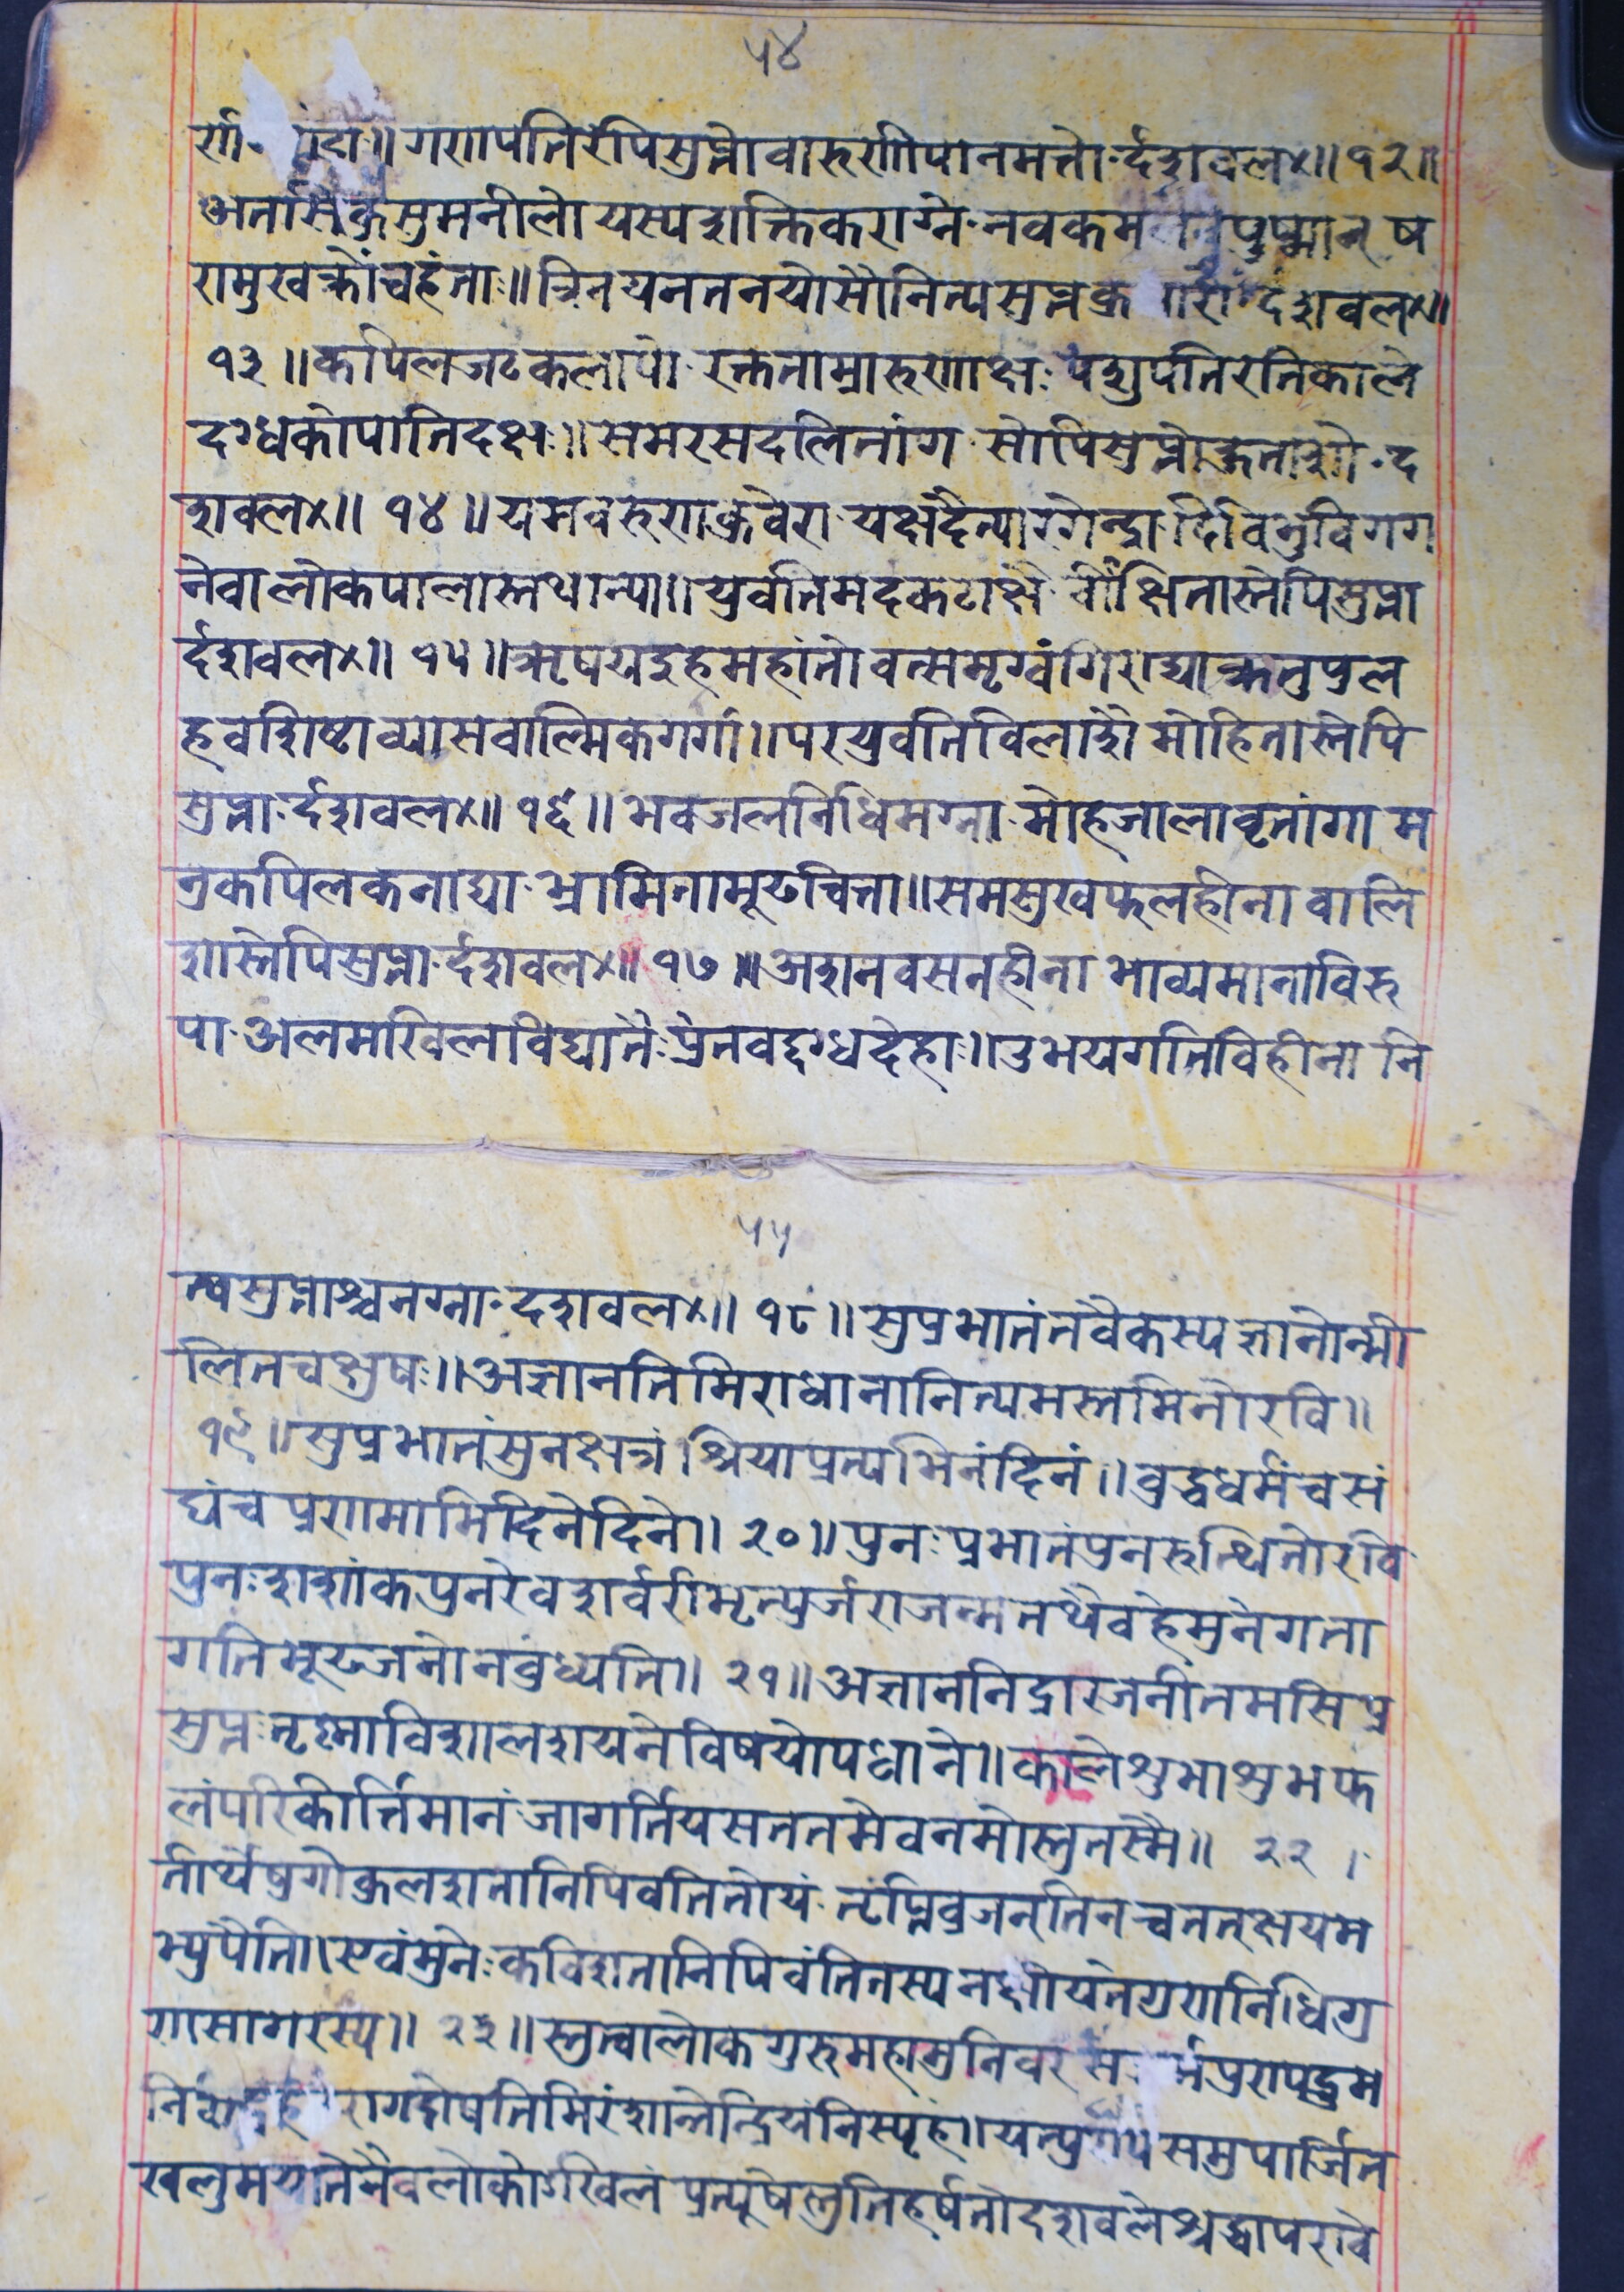 ५४
गणपतिरपिसुप्तोवारुणीपानमत्तो॰र्दशवल४॥१२॥
अतसिकुसुमनीलो यस्यशक्तिकराग्ने॰नवकमल पुष्मान्ष
रामुखक्रौंचहंता॥त्रिनयनतनयोसौनित्यसुप्तकु रो॰दशवल४॥
१३॥कपिलजटकलापो॰रक्तताम्रारुणाक्षः पशुपतिरतिकाले
दग्धकोपातिदक्षः॥समरसदलितांग सोपिसुप्तोकृताशो॰द
शवल४॥१४॥यमवरुणकुवेरा यक्षदैत्यारगेन्द्रा दिविभुविगग
नेवालोकपालास्तथान्या॥युवतिमदकटाक्षै र्वीक्षितास्तेपिसुप्ता
र्दशवल४॥१५॥ऋषयइहमहांतो वत्समृग्वंगिराद्याक्रतुपुल
हवशिष्टाव्यासवाल्मिकगर्गा॥परयुवतिविलाशै मोहितास्तेपि
सुप्ता॰र्दशवल४॥१६॥भवजलनिधिमग्ना॰मोहजालावृतांगा म
नुकपिलकनाद्या॰भ्रामितामूढचित्ता॥समसुखफलहीना वालि
शास्तेपिसुप्ता॰र्दशवल४॥१७॥अशनवसनहीना भाव्यमानाविरु
पा॰अलमखिलविद्यातैः प्रेतवद्दग्धदेहाः॥उभयगतिविहीना नि
५५
त्यसुप्ताश्चनग्ना॰दशवल४॥१८॥सुप्रभातंतवैकस्य ज्ञानोन्मी
लितचक्षुषः॥अज्ञानतिमिराधानानित्यमस्तमितोरवि॥
१९॥सुप्रभातंसुनक्षत्रं श्रियाप्रत्यभिनंदितं॥वुद्धधर्मंचसं
घंच प्रणमामिदिनेदिने॥२०॥पुनः प्रभातंपुनरुत्थितोरवि
पुनःशशांकपुनरेवशर्वरीमृत्युर्जराजन्मतथैवहेमुनेगता
गतिमूढजनोनवुध्यति॥२१॥अज्ञाननिद्रारजनीतमसिप्र
सुप्तःतृष्णाविशालशयनेविषयोपधाने॥कालेशुभाशुभफ
लंपरिकीर्त्तिमानं जागर्तियसततमेवनमोस्तुतस्मै॥२२।
तीर्थेषुगोकुलशतानिपिवतितोयं तृप्तिंव्रजन्तिनच्चतत्क्षयम
भ्युपैति॥एवंमुनेःकविशतानिपिवंतितस्यनक्षीयतेगुणनिधिगु
णसागरस्य॥२३॥स्तुत्वालोकगुरुमहामुनिवर
रागद्दोषतिमिरंशान्तेन्द्रियंनिस्पृहं॥ समुपार्जित
खलुमयातेनैवलोकोऽखिलं प्रत्यूषस्तुतिहर्षतोदशवलेश्रद्धापरावे